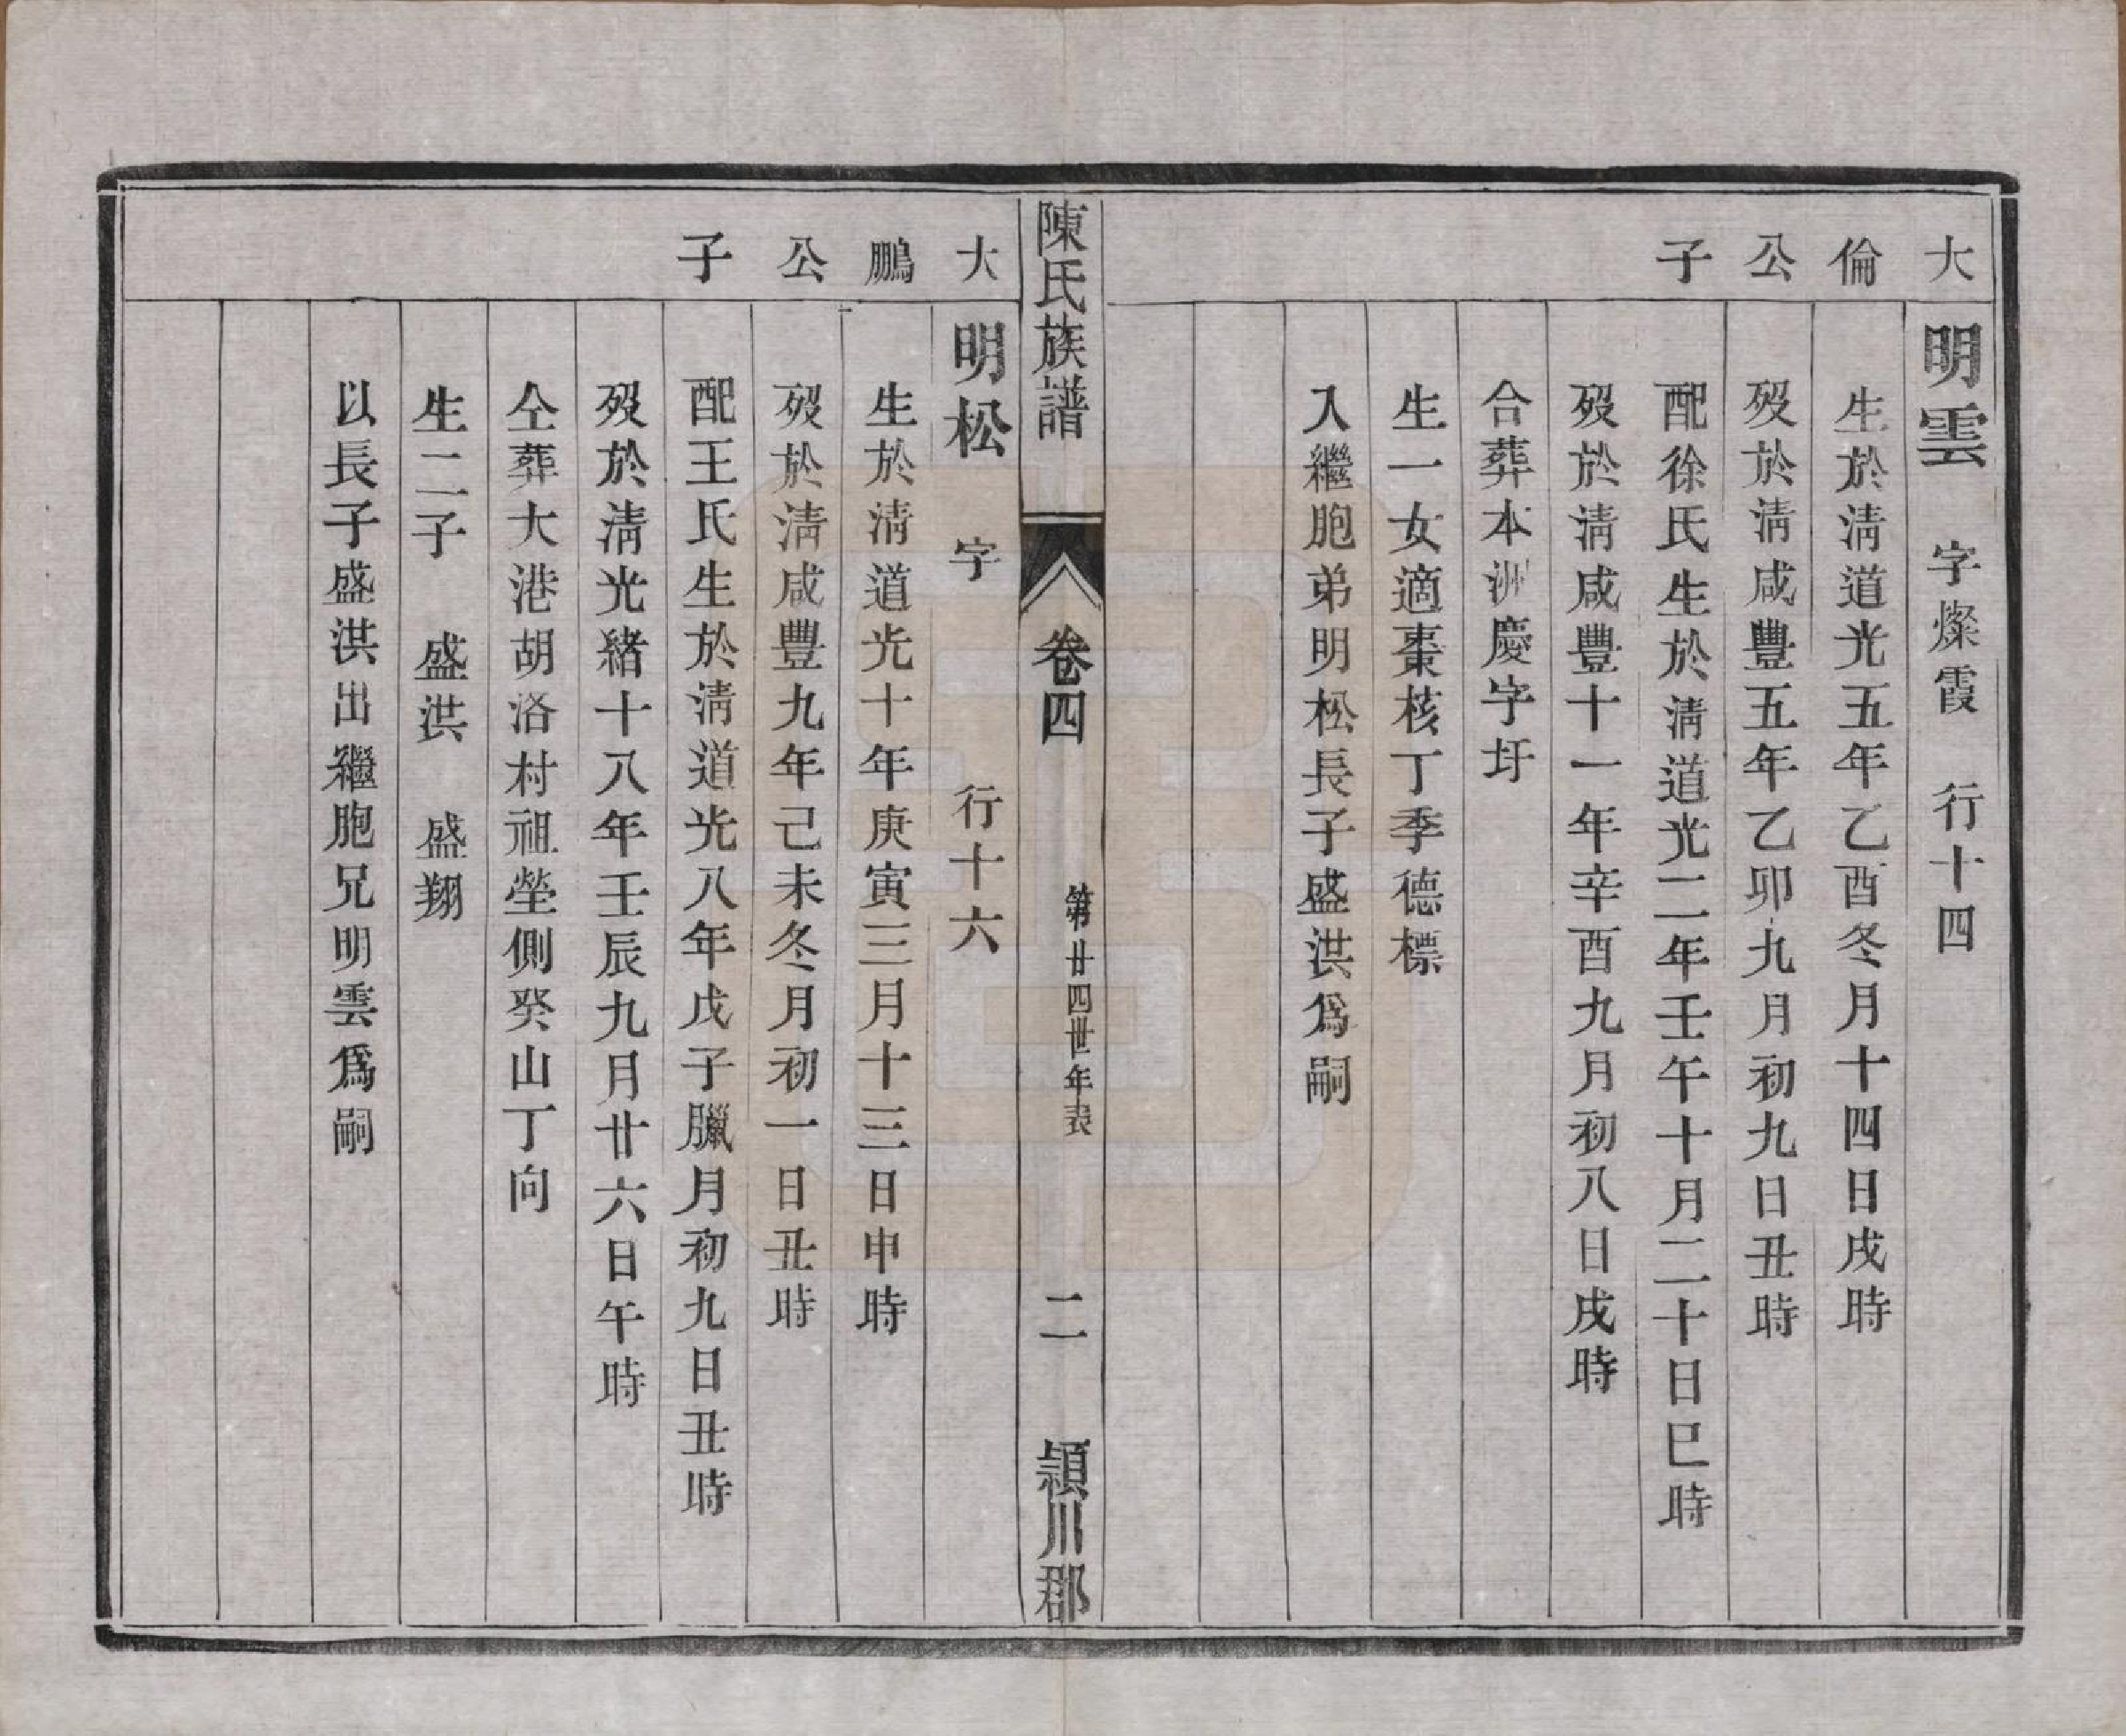 大倫公子
明雲　字燦霞　行十四
生於淸道光五年乙酉冬月十四日戌時
歿於淸咸豐五年乙卯九月初九日丑時
配徐氏生於淸道光二年壬午十月二十日巳時
歿於淸咸豐十一年辛酉九月初八日戌時
合葬本洲慶字圩
生一女適棗核丁季德標
入繼胞弟明松長子盛洪爲嗣
陳氏族譜　卷四　第廿四世年表　二　潁川郡
大鵬公子
明松　字　行十六
生於淸道光十年庚寅三月十三日申時
歿於淸咸豐九年己未冬月初一日丑時
配王氏生於淸道光八年戊子臘月初九日丑時
歿於淸光緖十八年壬辰九月廿六日午時
仝葬大港胡洛村祖塋側癸山丁向
生二子　盛洪　盛翔
以長子盛洪出繼胞兄明雲爲嗣